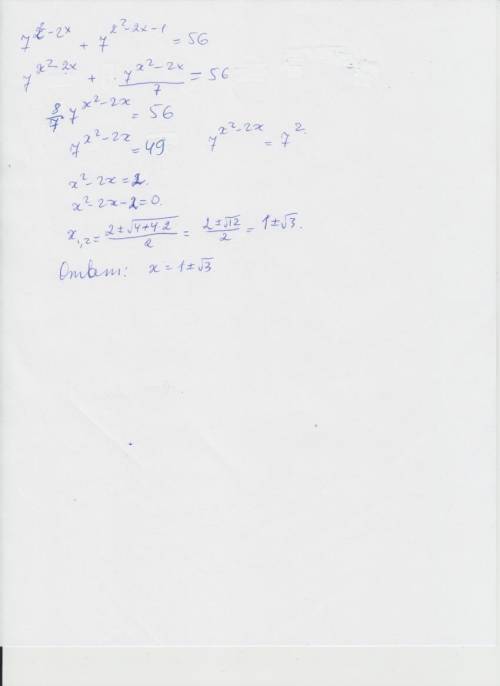 7^{x²-2x} + 7^{x²-2x-1} = 56
7^{x²-2x} + 7^{x²-2x}/7 = 56
8/7 · 7^{x²-2x} = 56
7^{x²-2x} = 49 7^{x²-2x} = 7²
x²-2x=2.
x²-2x-2=0.
x₁,₂ = (2±√(4+4·2))/2 = (2±√12)/2 = 1±√3.
Ответ: x = 1±√3